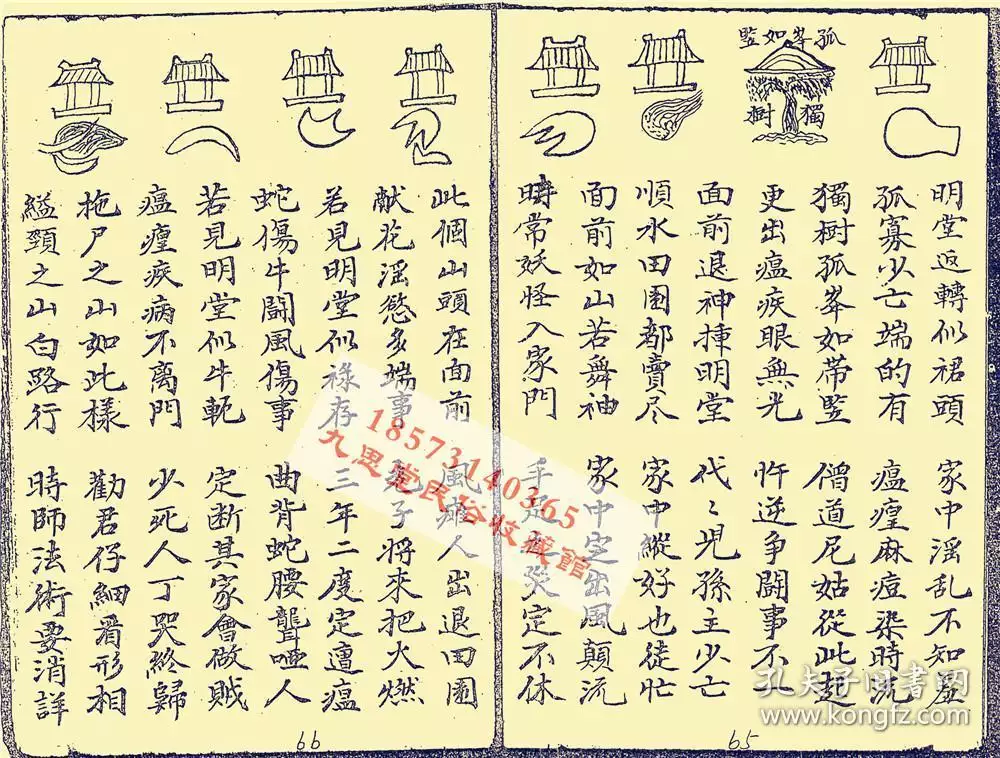 孤峯如監
獨樹
明堂返轉似裙頭 家中淫乱不知羞
孤寡少亡端的有 瘟癀麻痘染時流
獨樹孤峯如帶監 僧道尼姑從此起
更出瘟疾眼無光 忤逆争闘事不一
面前退神揷明堂 代〻児孫主少亡
順水田園都賣尽 家中縱好也徒忙
面前如山若舞袖 家中定出風顛流
時常妖怪入家門 手足 定不休
65
此個山頭在面前 風癱人出退田園
献花淫慾多端事 子將來把火燃
若見明堂似祿存 三年二度定遭瘟
蛇傷牛闘風傷事 曲背蛇腰聾啞人
若見明堂似牛軛 定断其家會做賊
瘟癀疾病不离門 少死人丁哭終歸
拖尸之山如此樣 勸君仔細看形相
縊頸之山白路行 時師法術要消詳
66
18573140365
九思堂民俗收藏館
孔夫子旧书网
www.kongfz.com